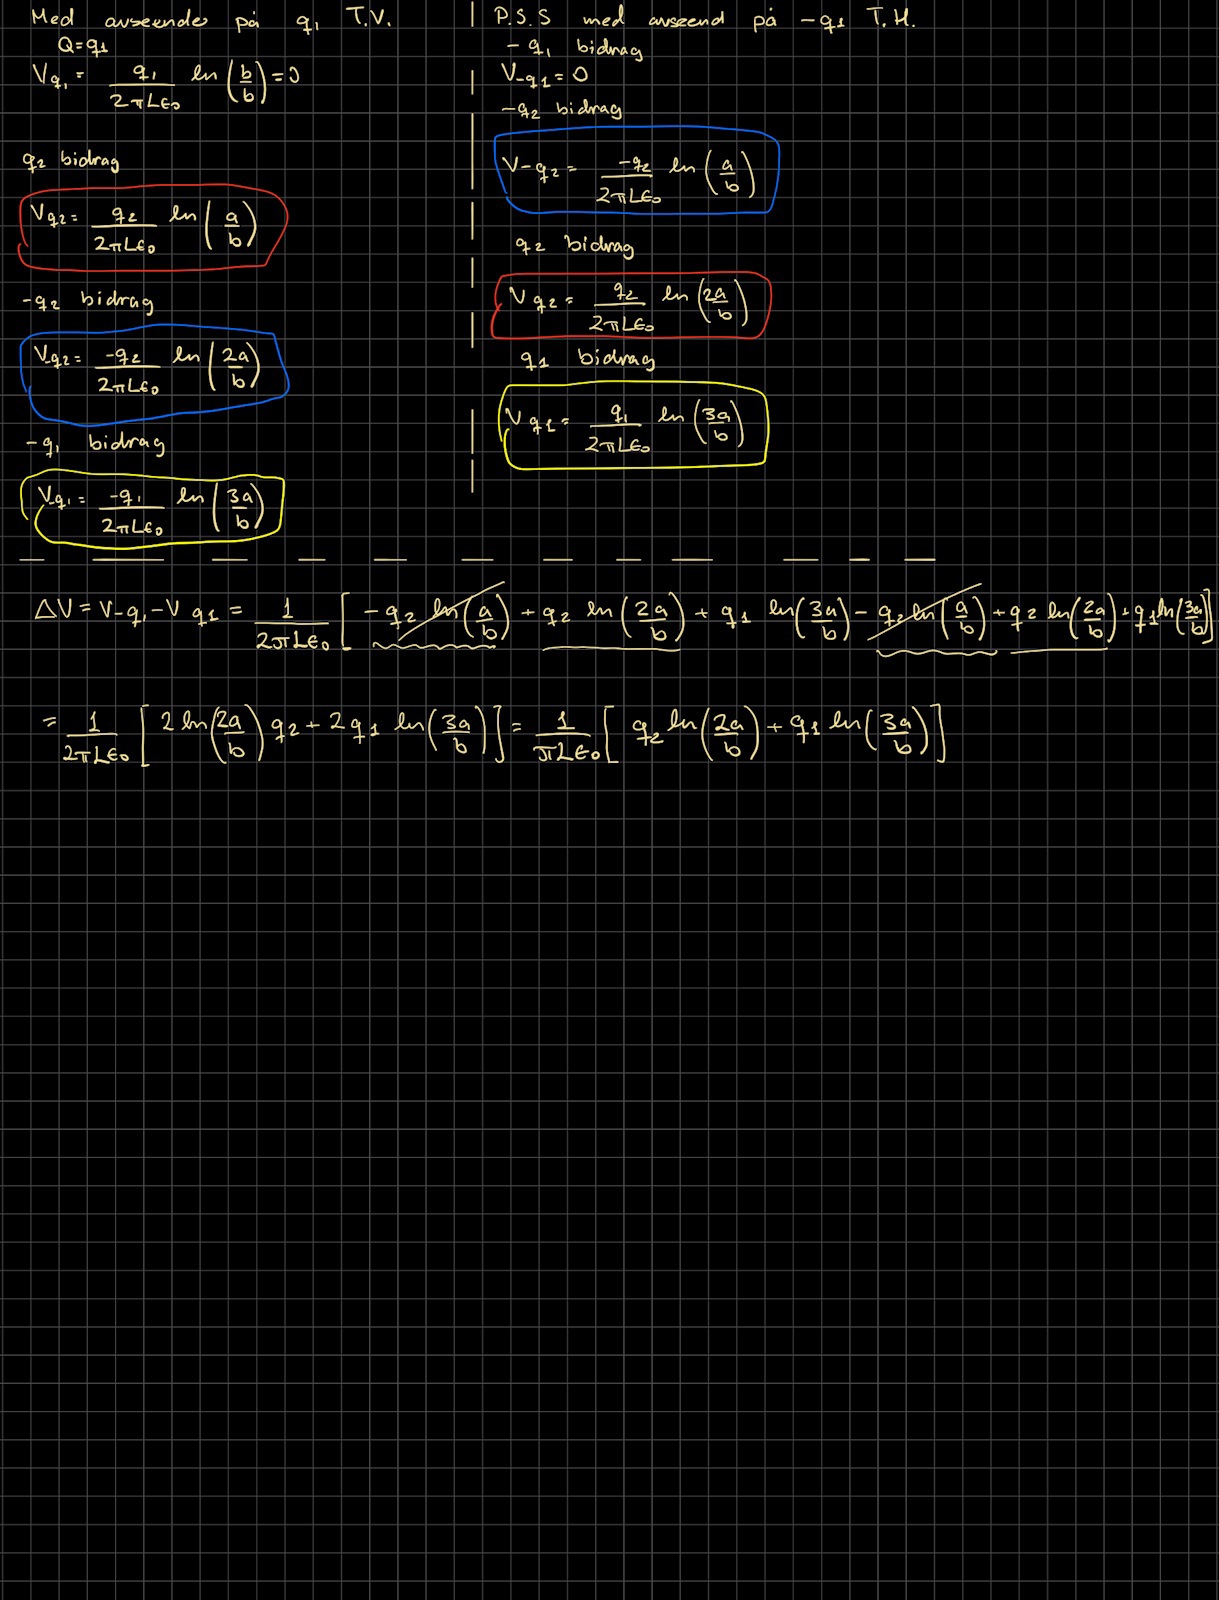 Med avseende på q₁ T.V.
Q=q1
V_q₁ = q₁/(2πLε₀) ln(b/b) = 0
q₂ bidrag
V_q2 = q₂/(2πLε₀) ln(a/b)
-q₂ bidrag
V_-q2 = -q₂/(2πLε₀) ln(2a/b)
-q₁ bidrag
V_-q₁ = -q₁/(2πLε₀) ln(3a/b)
P.S.S med avseend på -q1 T.H.
-q₁ bidrag
V_-q1 = 0
-q₂ bidrag
V-q₂ = -q₂/(2πLε₀) ln(a/b)
q₂ bidrag
V q₂ = q₂/(2πLε₀) ln(2a/b)
q₁ bidrag
V q1 = q₁/(2πLε₀) ln(3a/b)
ΔV = V-q₁ - V q1 = 1/(2πLε₀) [ -q₂ ln(a/b) + q₂ ln(2a/b) + q1 ln(3a/b) - q₂ ln(a/b) + q₂ ln(2a/b) + q1 ln(3a/b) ]
= 1/(2πLε₀) [ 2 ln(2a/b) q₂ + 2 q1 ln(3a/b) ] = 1/(πLε₀) [ q₂ ln(2a/b) + q1 ln(3a/b) ]